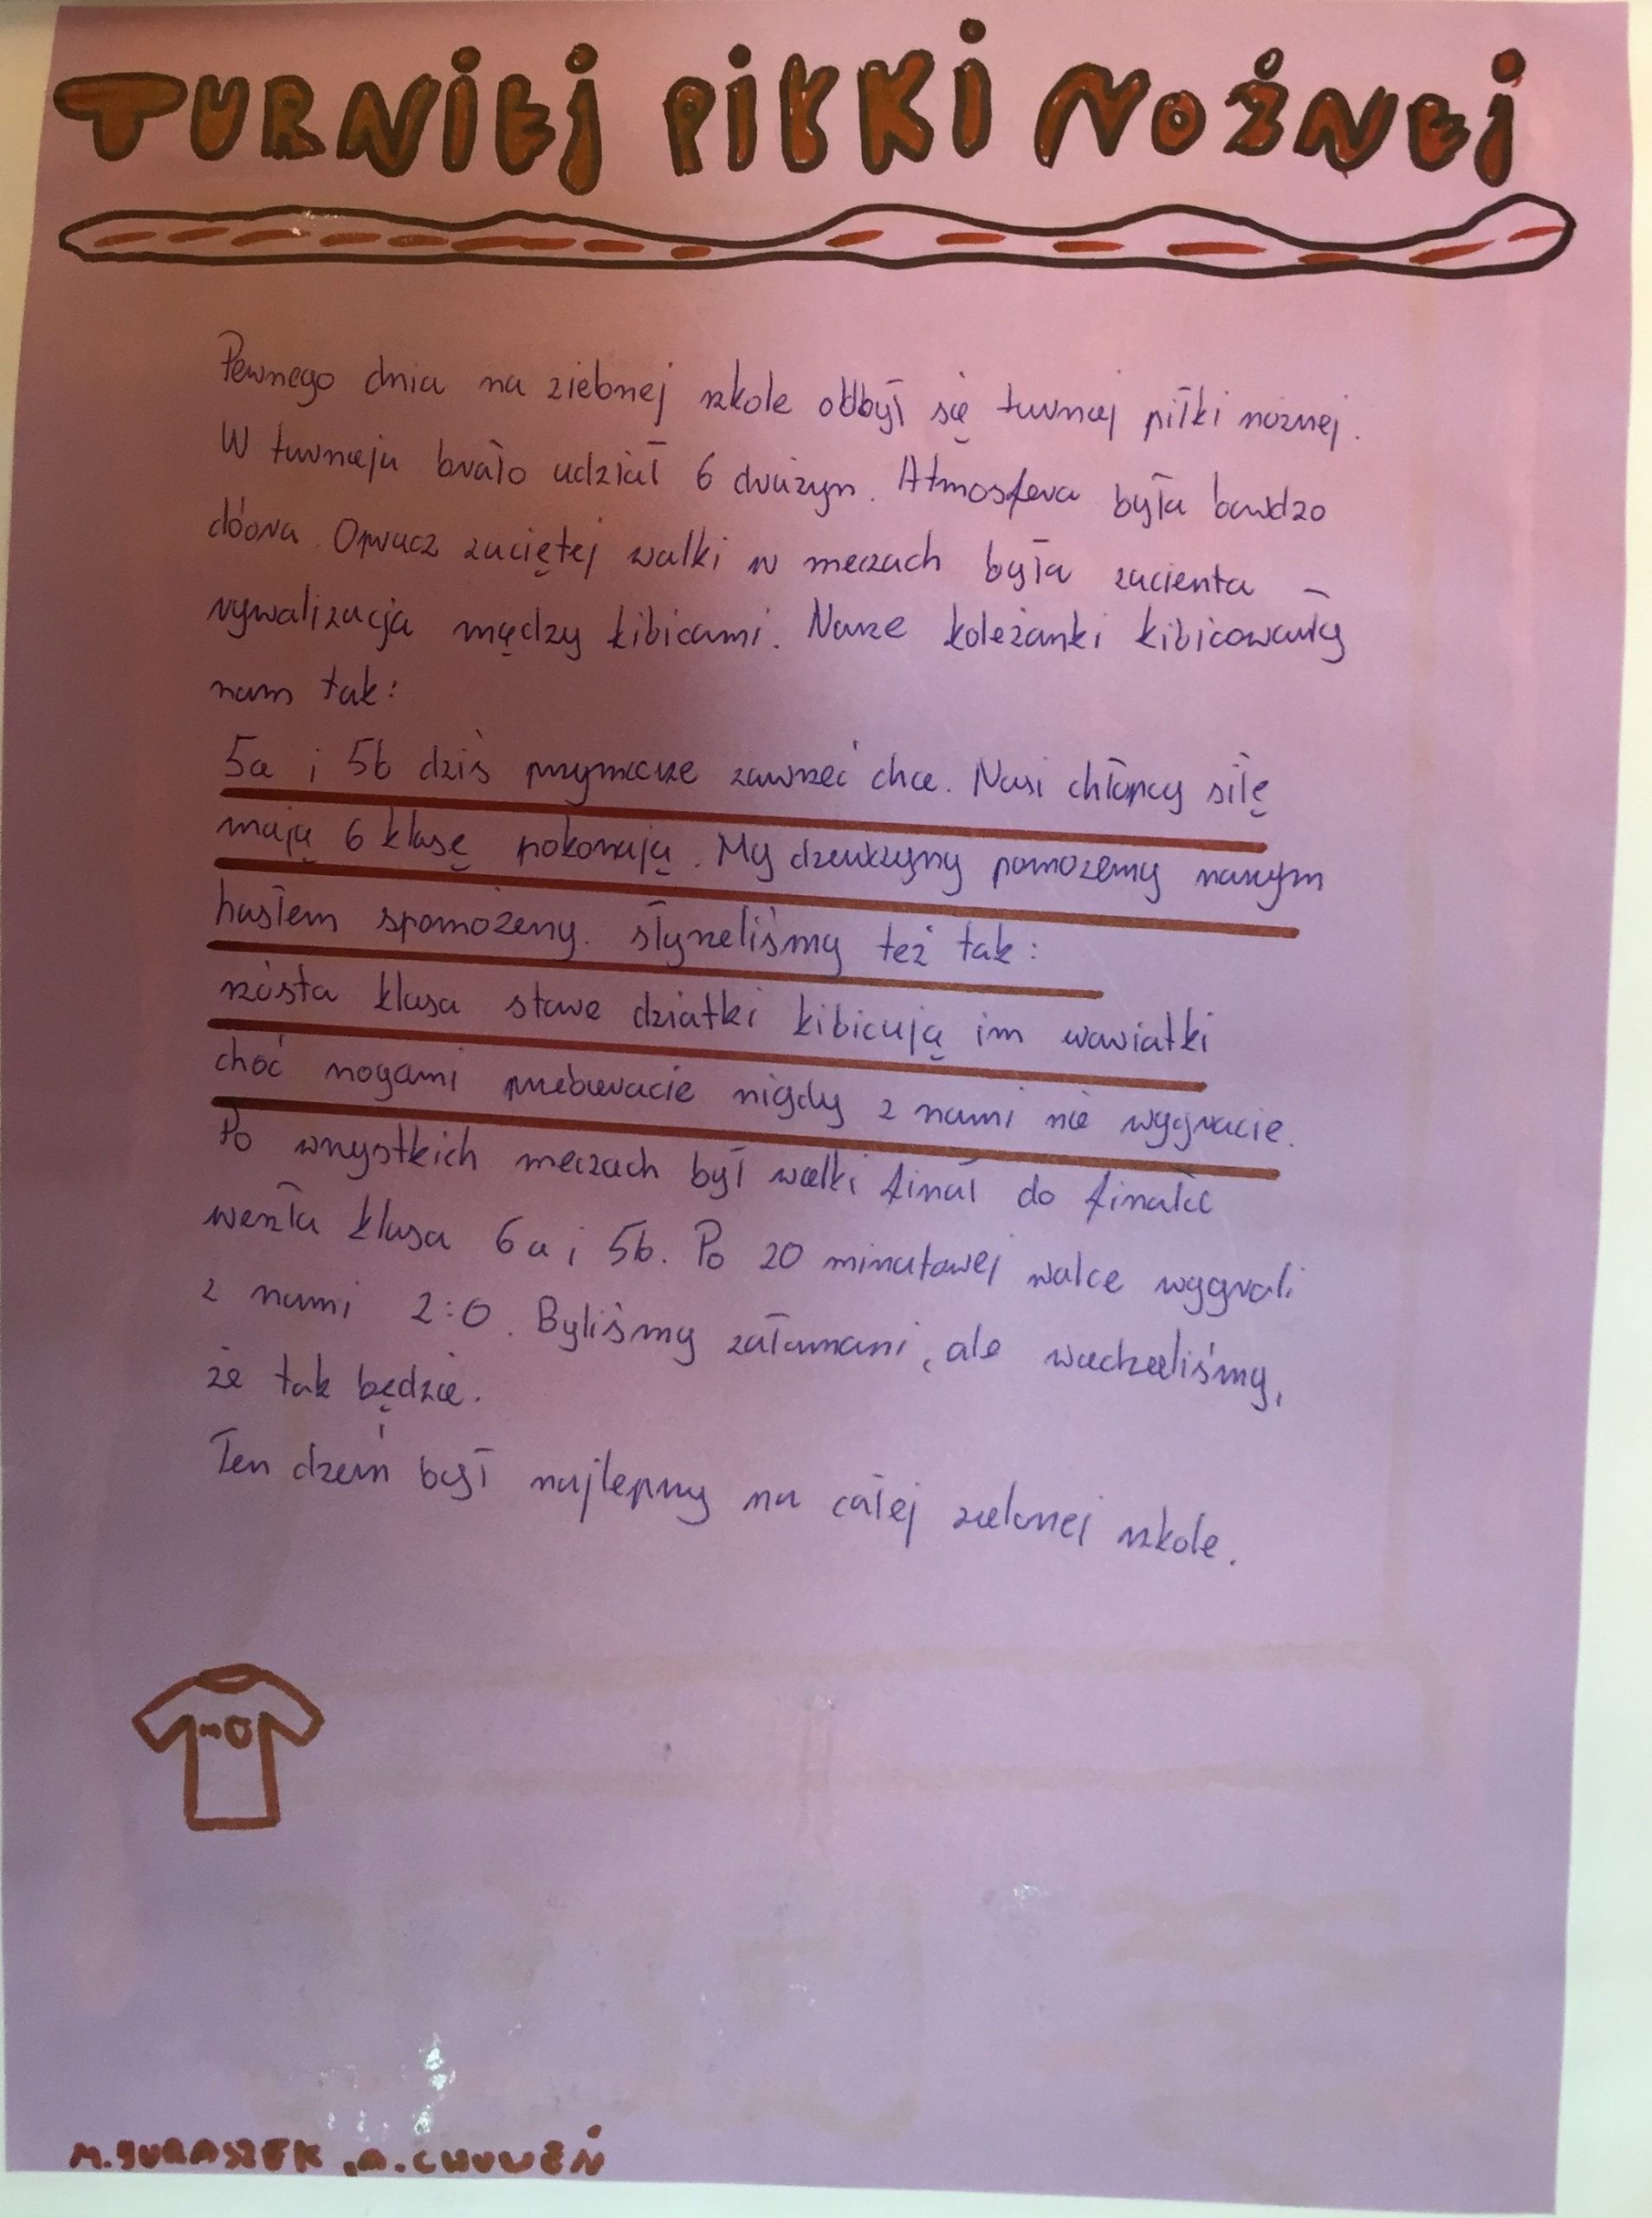 TURNIEJ PIŁKI NOŻNEJ
Pewnego dnia na zielonej szkole odbył się turniej piłki nożnej.
W turnieju brało udział 6 drużyn. Atmosfera była bardzo
dobra. Oprucz zaciętej walki w meczach była zacienta –
rywalizacja między kibicami. Nasze koleżanki kibicowały
nam tak:
5a i 5b dziś przymieże zawrzeć chce. Nasi chłopcy siłę
mają 6 klasę pokonają. My dziewczyny pomożemy naszym
hasłem spomożemy. słyszeliśmy też tak:
szósta klasa stare dziatki kibicują im wariatki
choć nogami przebieracie nigdy z nami nie wygracie.
Po wszystkich meczach był wielki finał do finału
weszła klasa 6a i 5b. Po 20 minutowej walce wygrali
z nami 2:0. Byliśmy załamani, ale wiedzieliśmy,
że tak będzie.
Ten dzień był najlepszy na całej zielonej szkole.
M.JURASZEK, A.